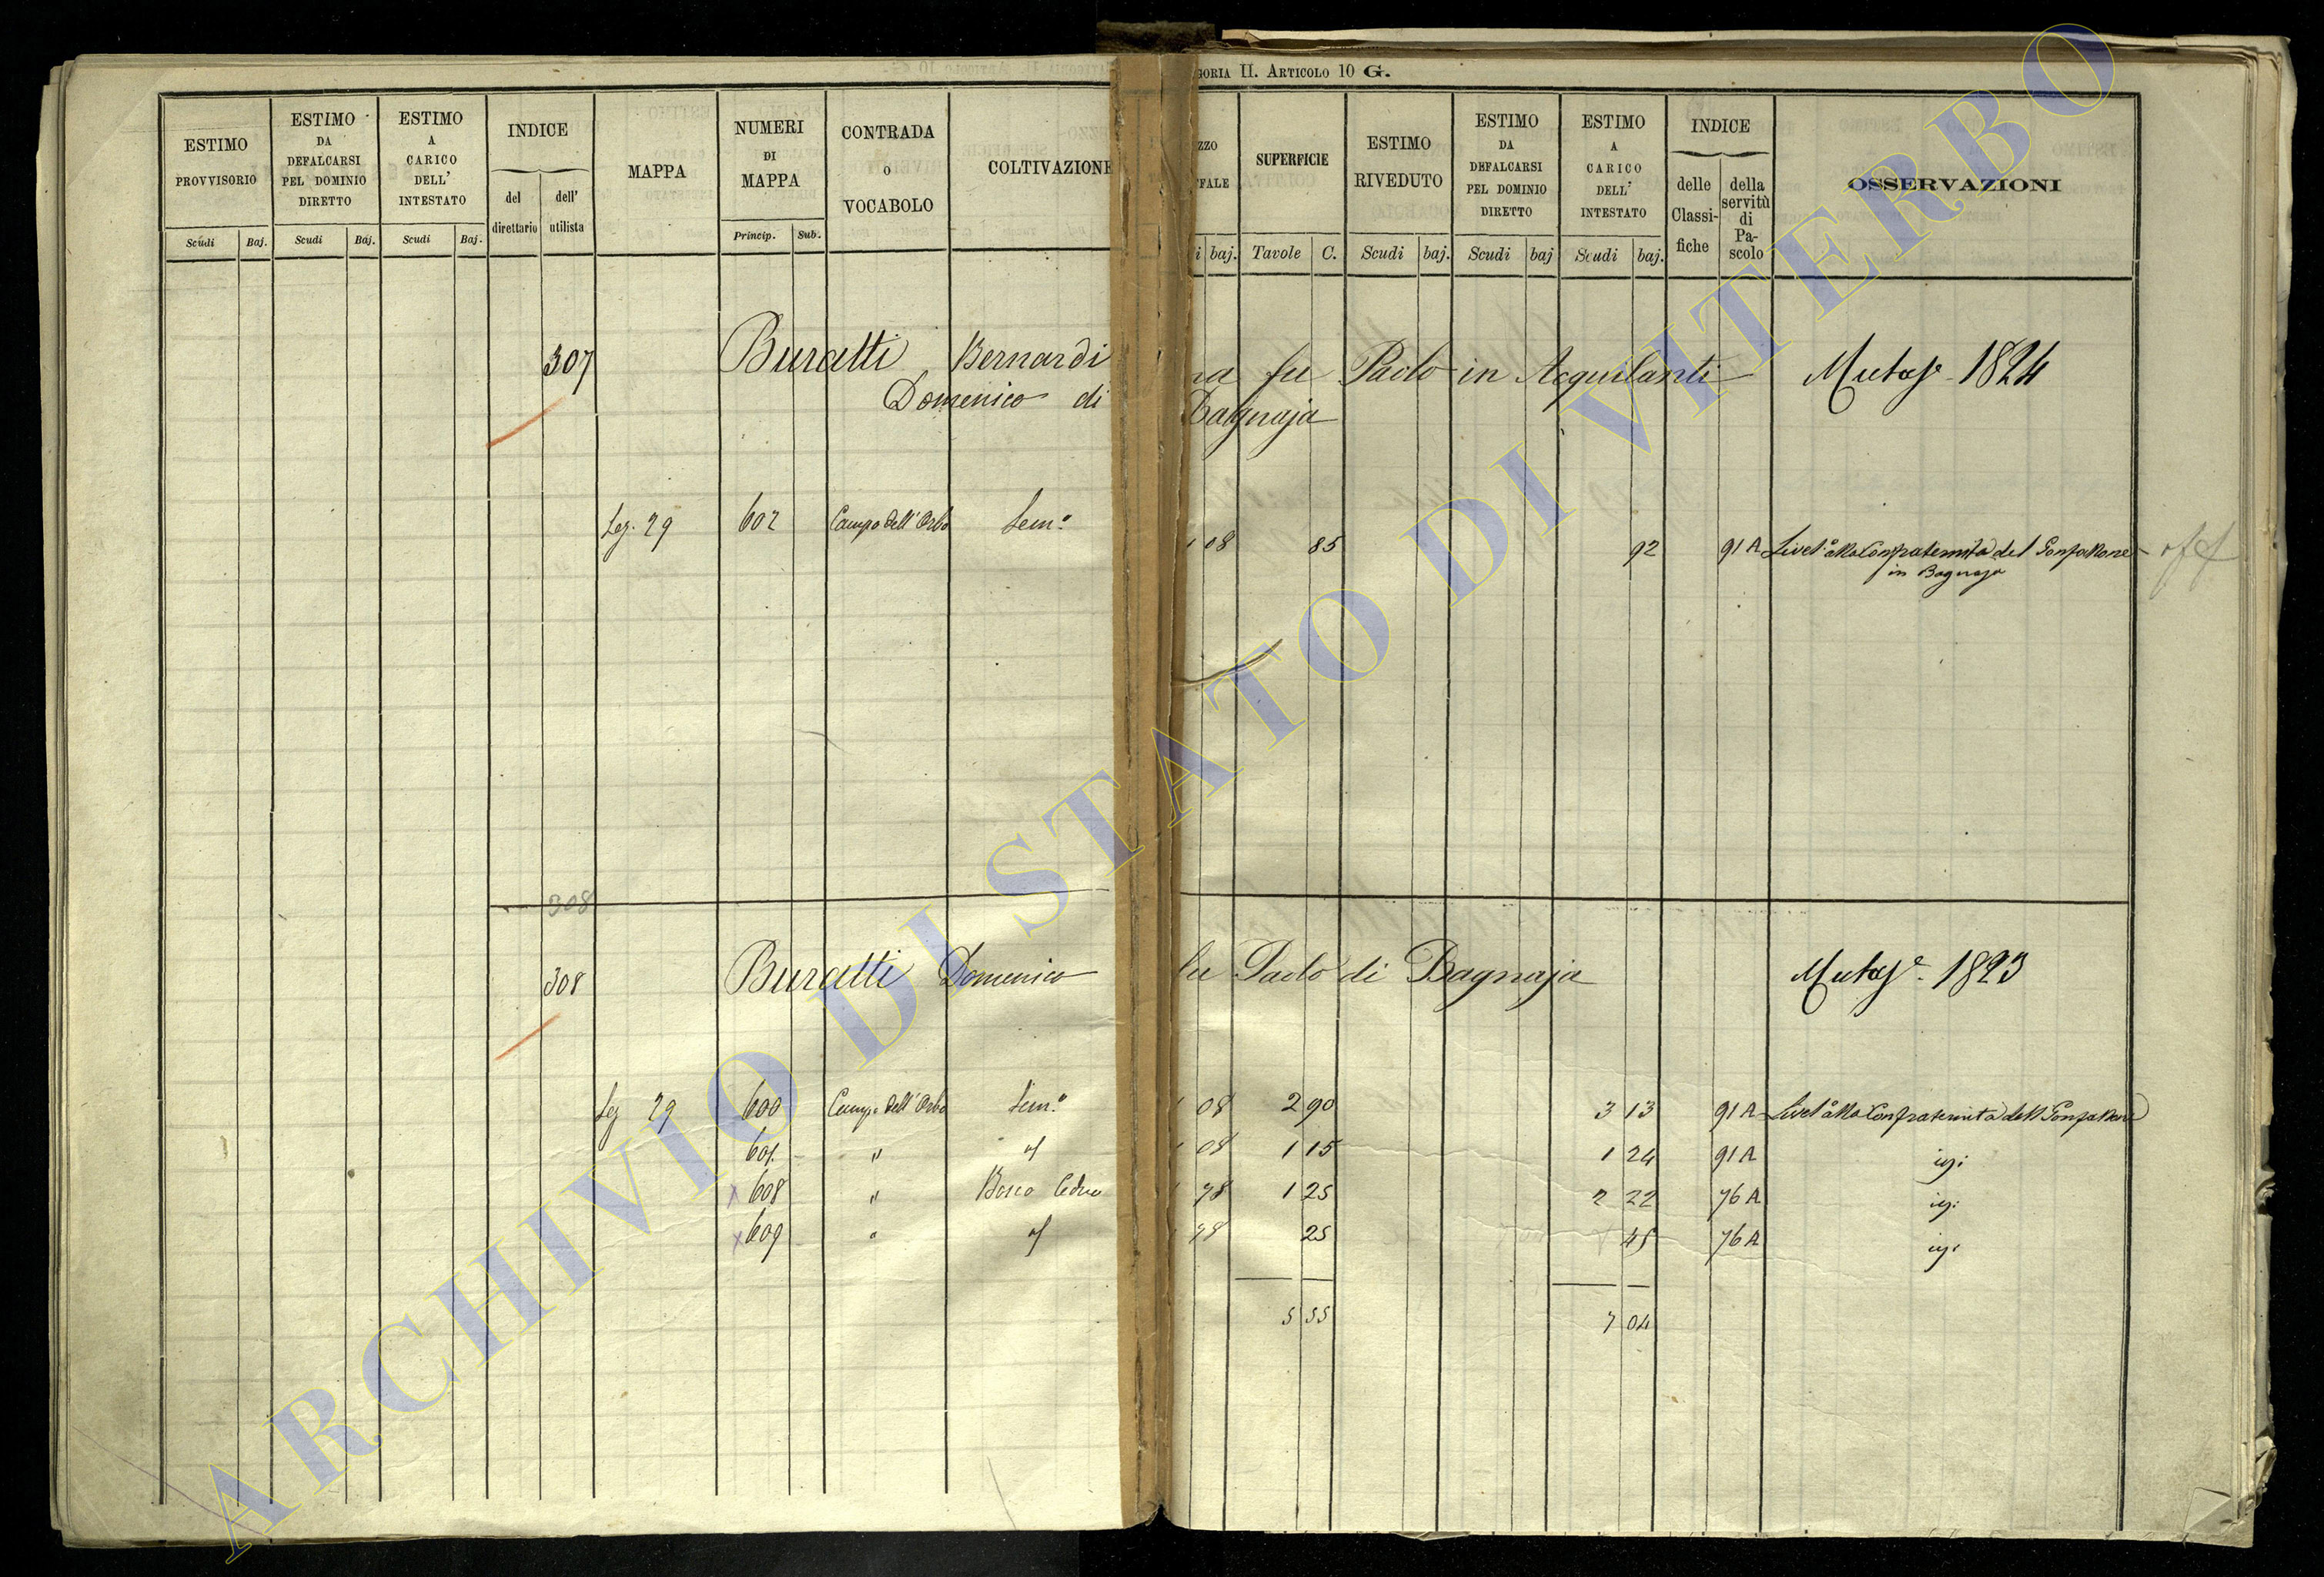 GORIA II. ARTICOLO 10 G.
ESTIMO PROVVISORIO
ESTIMO DA DEFALCARSI PEL DOMINIO DIRETTO
ESTIMO A CARICO DELL' INTESTATO
INDICE
del direttario
dell' utilista
MAPPA
NUMERI DI MAPPA
CONTRADA O VOCABOLO
COLTIVAZIONE
ZZO
FALE
SUPERFICIE
ESTIMO RIVEDUTO
ESTIMO DA DEFALCARSI PEL DOMINIO DIRETTO
ESTIMO A CARICO DELL' INTESTATO
INDICE
delle Classifiche
della servitù di Pascolo
OSSERVAZIONI
Scudi Baj. Scudi Baj. Scudi Baj. Princip. Sub.
i baj. Tavole C. Scudi baj. Scudi baj Scudi baj.
307 Buratti Bernardi na fu Paolo in Acquilanti
Domenico di Bagnaja
602 Campo dell' Orbo Sem.o 08 85 92 91 A Livel.o alla Confraternita del Gonfalone
29
in Bagnaja
308
308 Buratti Domenico fu Paolo di Bagnaja
29 600 Campo dell' Orbo Sem.o 08 2 90 3 13 91 A Livel.o alla Confraternita del Gonfalone
601 " 08 1 15 1 24 91 A
x 608 " Bosco Ceduo 78 1 25 2 22 76 A
x 609 " 78 25 45 76 A
5 55 7 04
1824
1823
ARCHIVIO DI STATO DI VITERBO